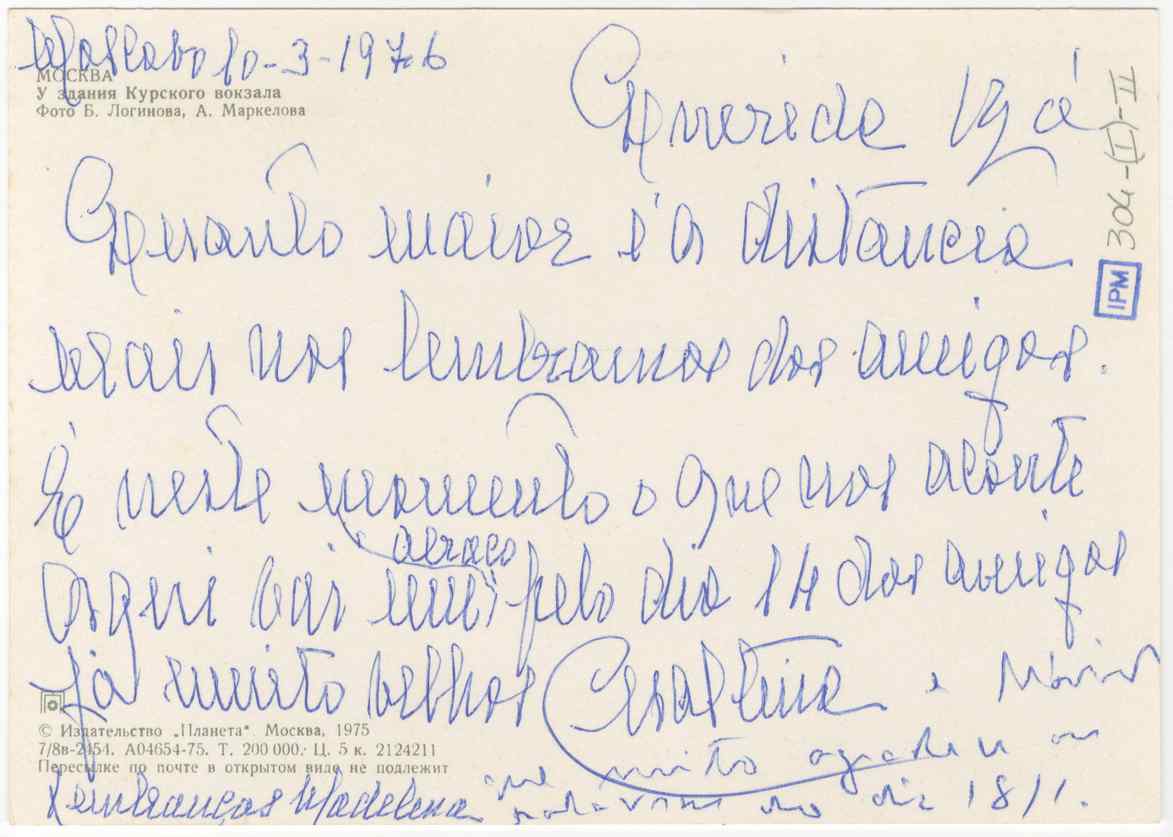 Moscovo 10-3-1976
МОСКВА
У здания Курского вокзала
Фото Б. Логинова, А. Маркелова
Querida
304-(I)-II
IPM
Quanto maior é a distância
mais nos lembramos dos amigos.
E neste momento o que nos aconte
abraço
Aqui vai um pelo dia 14 dos amigos
já muito velhos Cesaltina e Mário
© Издательство „Планета“ Москва, 1975
7/8в-2454. А04654-75. Т. 200 000. Ц. 5 к. 2124211
Пересылке по почте в открытом виде не подлежит
que muito agradeceu as
Lembranças Madalena
palavras do dia 18/1.